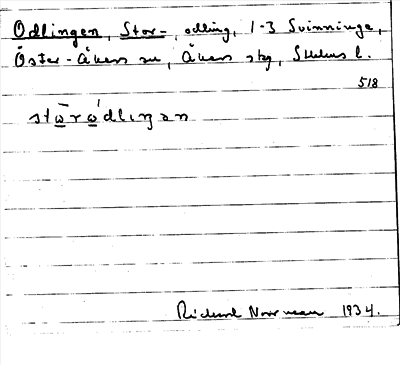 Odlingen, Stor-, odling, 1-3 Svinninge,
Öster-Åkers sn, Åkers skg, Sthlms l.
518
stōrōdlıŋən
Richard Norrman 1934.